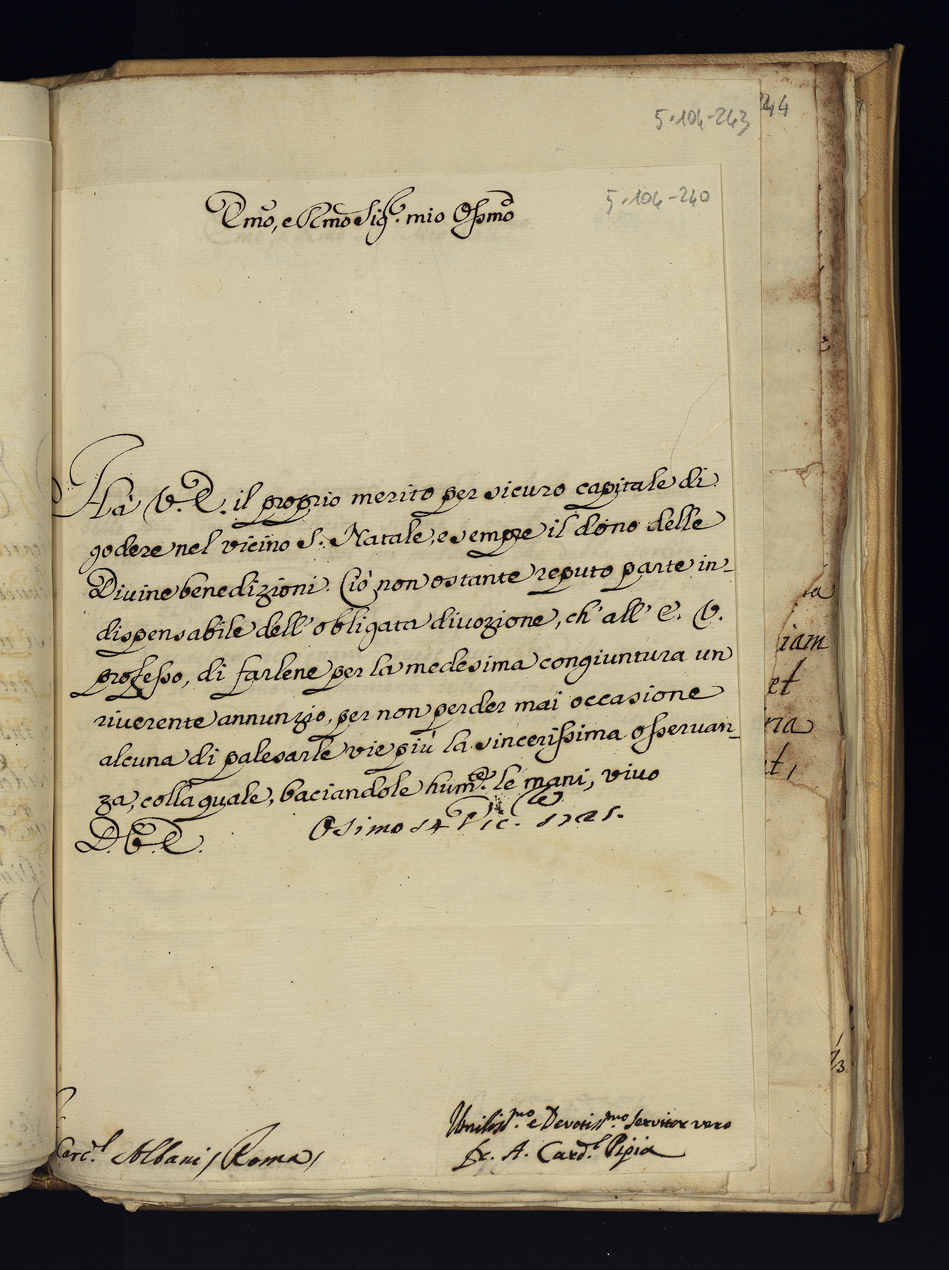 244
5·104-243
5·104-240
Emo, e Rmo Sig. mio Ossmo
Hà V. E. il proprio merito per sicuro capitale di
godere nel vicino S. Natale, e sempre il dono delle
Divine benedizioni. Ciò non ostante reputo parte in-
dispensabile dell' obligata divozione, ch' all' E. V.
professo, di farlene per la medesima congiuntura un
riverente annunzio, per non perder mai occasione
alcuna di palesarle vie più la sincerissima osservan-
za, colla quale, baciandole hum.te le mani, vivo
D. V. E. Osimo 14 Dic.re 1725.
Umiliss.mo e Devotis.mo Servitor vero
Card.l Albani / Roma / fr. A. Card.l Pipia
iam
et